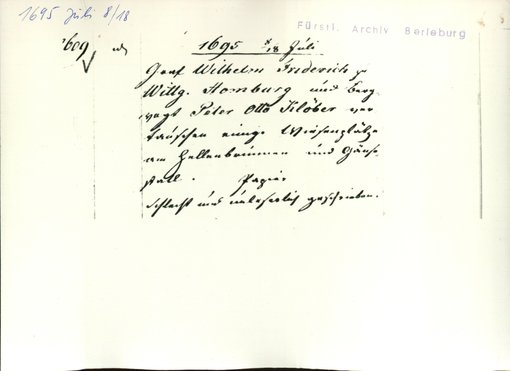 1695 Juli 8/18
Fürstl. Archiv Berleburg
1695 8/18 Juli
Graf Wilhelm Friderich zu
Wittg. Homburg und Berg-
vogt Peter Otto Klöber ver
tauschen einige Wiesenplätze
am Hellenbrunnen und Gänse
stall. Papier
schlecht und unleserlich geschrieben.